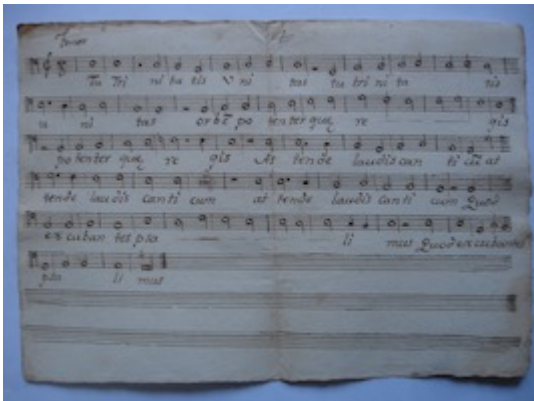 Tenor
Tu Tri ni ta tis V ni tas tu tri ni ta tis
u ni tas orbē po ten ter quæ re gis
po ten ter quæ re gis At ten de laudis can ti cū at
tende laudis can ti cum at tende laudis can ti cum Quod
ex cuban tes psa li mus Quod ex cubantes
psa li mus